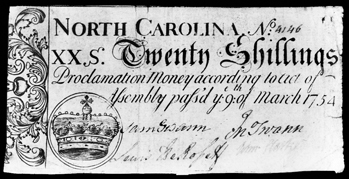 NORTH CAROLINA, No. 4146
XX,S. Twenty Shillings
Proclamation Money according to act of
Assembly pass'd ye. 9th. of March 1754
Sam Swann Jn Swann
Lewis DeRosset